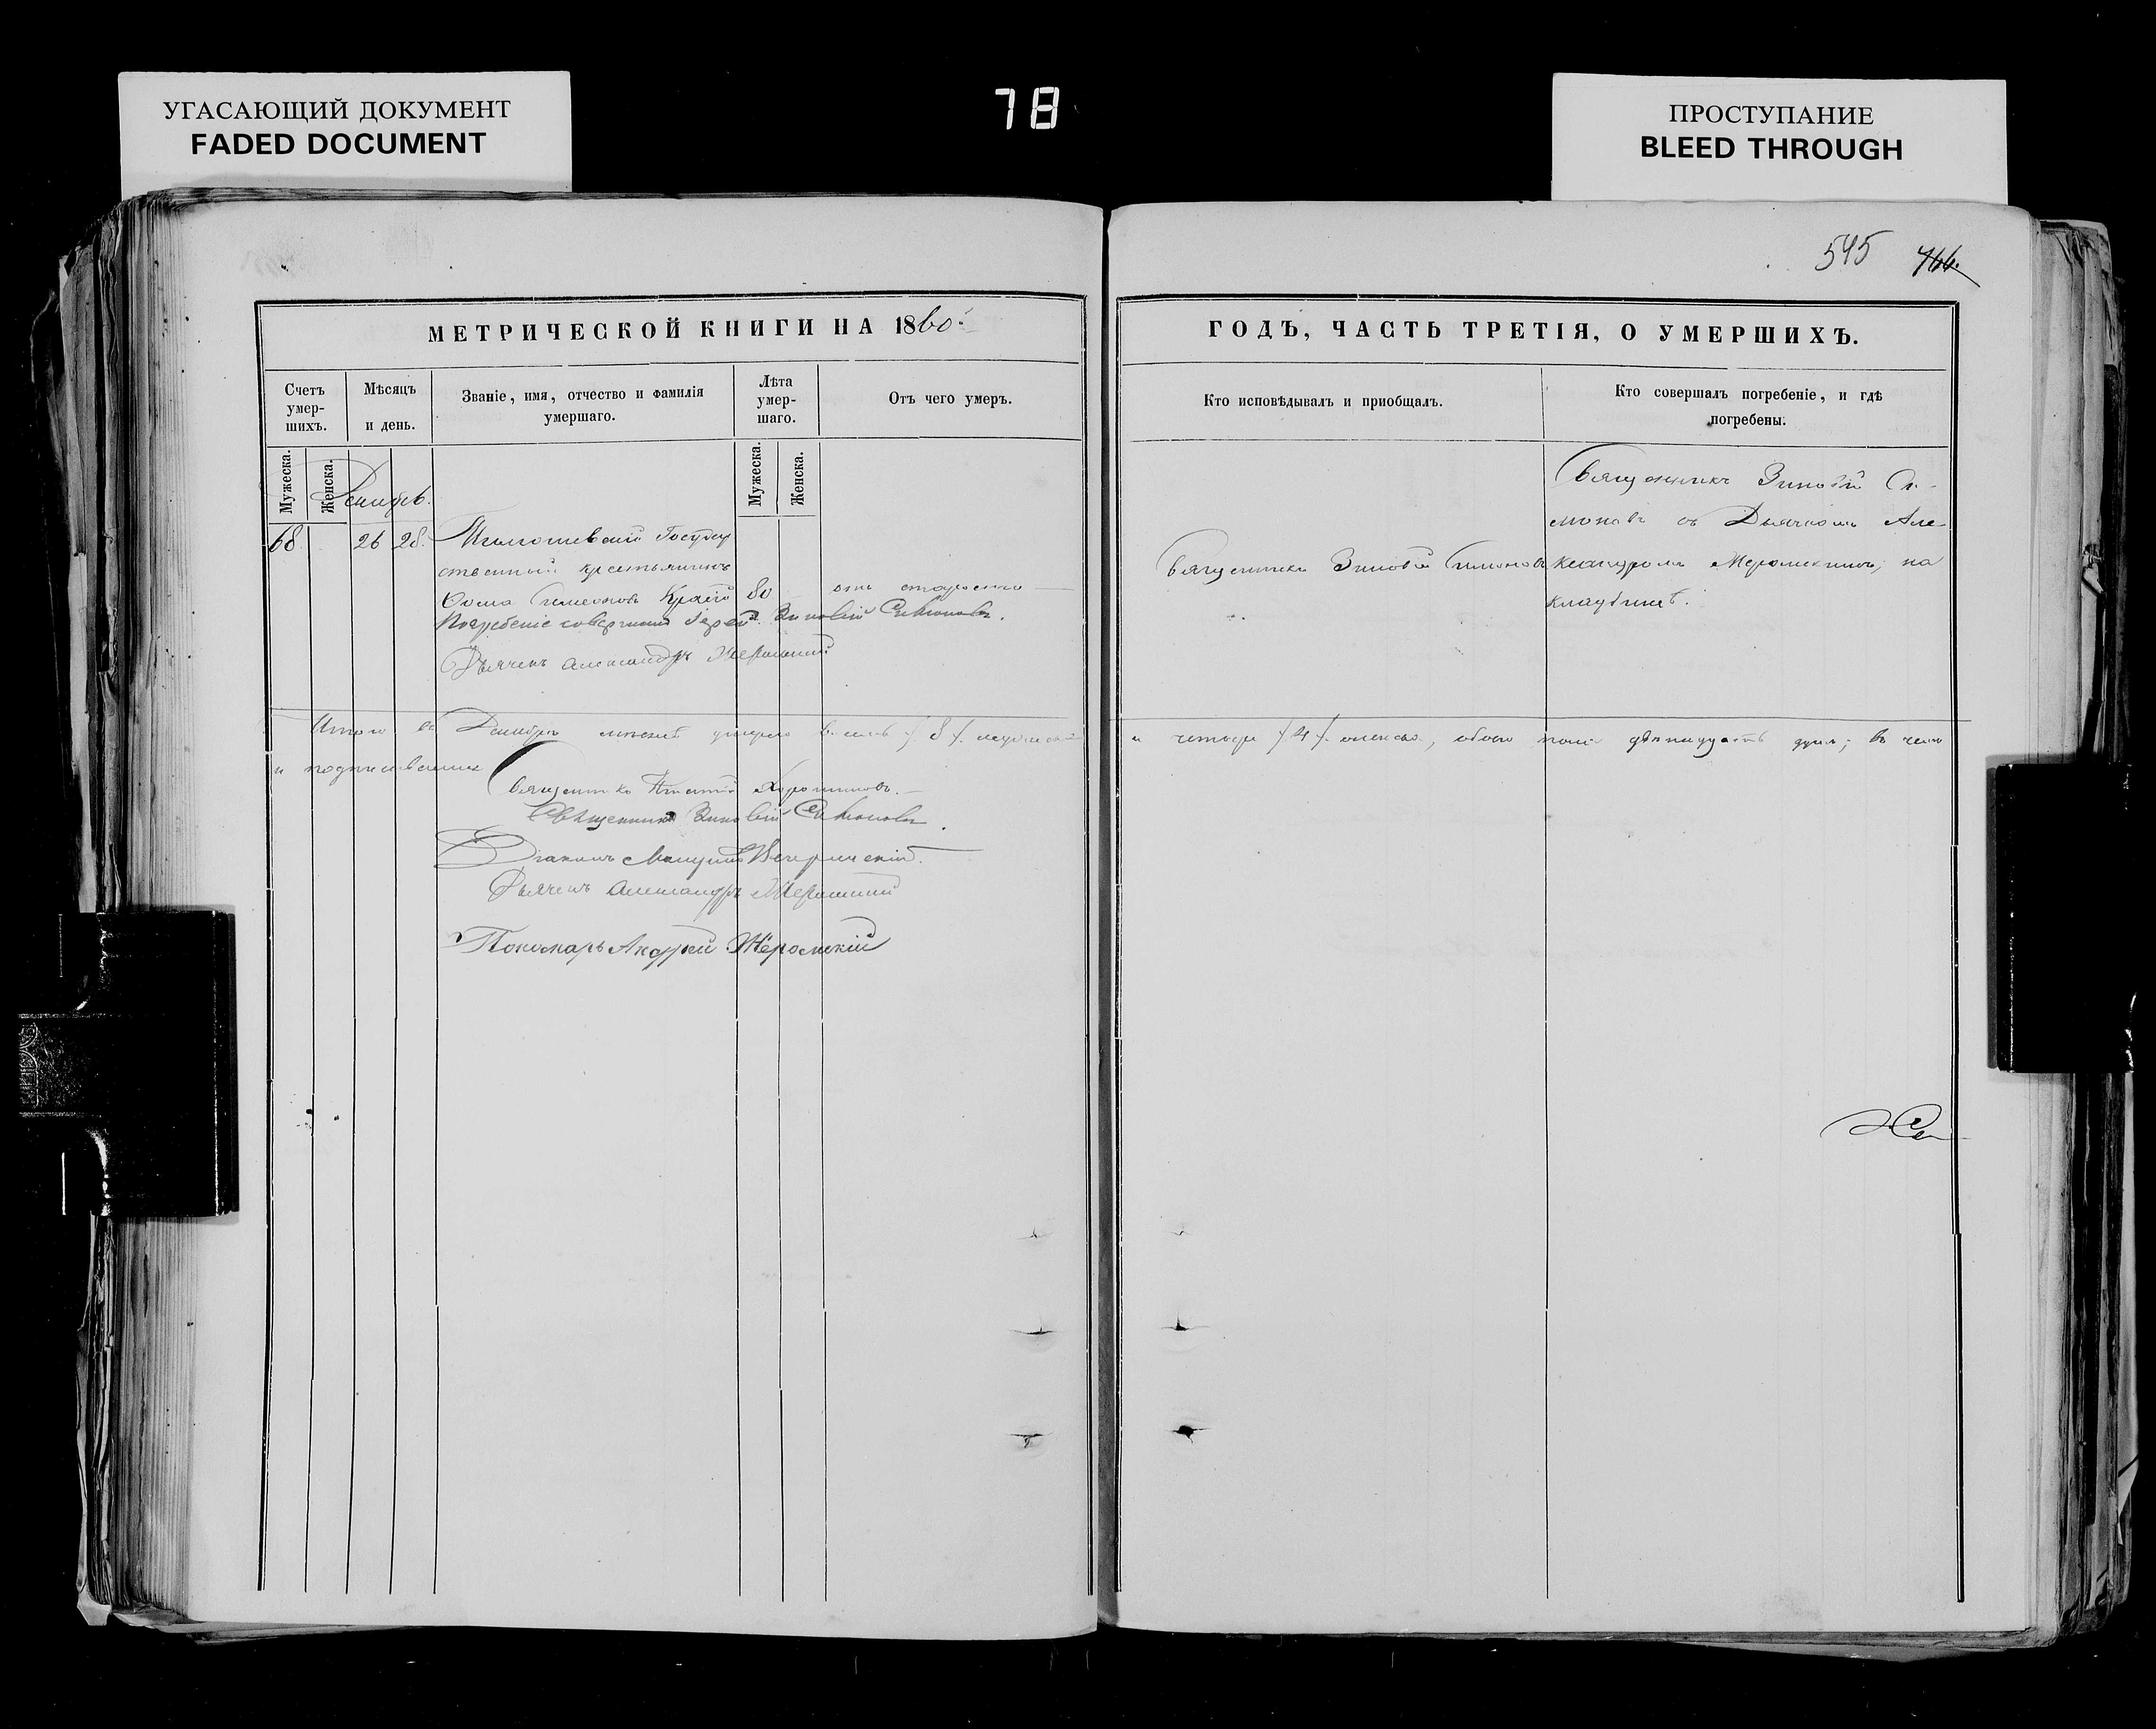 УГАСАЮЩИЙ ДОКУМЕНТ
FADED DOCUMENT
78
ПРОСТУПАНИЕ
BLEED THROUGH
545 766.
МЕТРИЧЕСКОЙ КНИГИ НА 1860й
Счетъ умер-шихъ.
Мѣсяцъ и день.
Званіе, имя, отчество и фамилія умершаго.
Лѣта умер-шаго.
Отъ чего умеръ.
Мужеска.
Женска.
Мужеска.
Женска.
Декабрь.
68. 26 28. Государ
ственный крестьянинъ
Ѳома Симеоновъ 80 отъ старости
Погребеніе совершилъ Іерей Зиновій Симоновъ.
Дьячекъ Александръ Жеромскій
Итого въ Декабрѣ мѣсяцѣ умерло восемь /8/ мужеска
и подписываемся
Священникъ
Священникъ Зиновій Симоновъ.
Діаконъ
Дьячекъ Александръ Жеромскій
Пономарь Андрей Жеромскій
ГОДЪ, ЧАСТЬ ТРЕТІЯ, О УМЕРШИХЪ.
Кто исповѣдывалъ и приобщалъ.
Кто совершалъ погребеніе, и гдѣ погребены.
Священникъ Зиновій Симоновъ
Священникъ Зиновій Си-
моновъ съ Дьячкомъ Але-
ксандромъ Жеромскимъ, на
кладбищѣ.
и четыре /4/ женска, обоего пола двѣнадцать душъ; въ чемъ